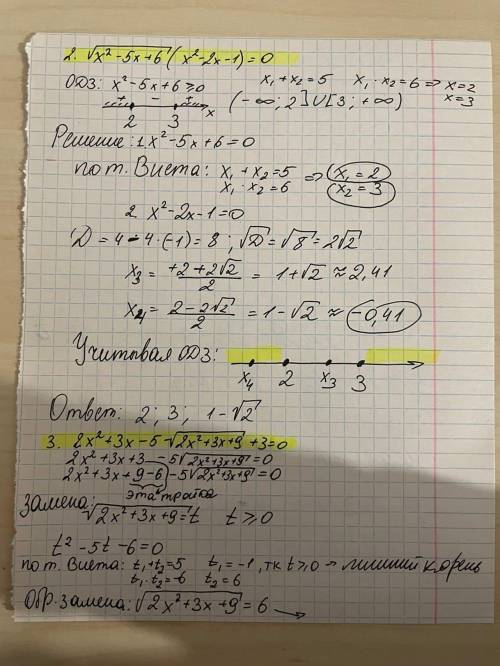 2. √(x²-5x+6) (x²-2x-1)=0
ОДЗ: x²-5x+6≥0 x₁+x₂=5 x₁·x₂=6 ⇒ x=2
x=3
+ - + x (-∞; 2]∪[3; +∞)
2 3
Решение: 1. x²-5x+6=0
по т. Виета: x₁+x₂=5 ⇒ x₁=2
x₁·x₂=6 x₂=3
2. x²-2x-1=0
D=4-4·(-1)=8; √D=√8=2√2
x₃ = (+2+2√2)/2 = 1+√2 ≈ 2,41
x₄ = (2-2√2)/2 = 1-√2 ≈ -0,41
Учитывая ОДЗ:
x₄ 2 x₃ 3
Ответ: 2; 3; 1-√2
3. 2x²+3x-5√(2x²+3x+9)+3=0
2x²+3x+3-5√(2x²+3x+9)=0
2x²+3x+9-6-5√(2x²+3x+9)=0
эта тройка
Замена:
√(2x²+3x+9)=t t≥0
t²-5t-6=0
по т. Виета: t₁+t₂=5, t₁=-1, тк t≥0 → лишний корень
t₁·t₂=-6 t₂=6
Обр. замена: √(2x²+3x+9)=6 →